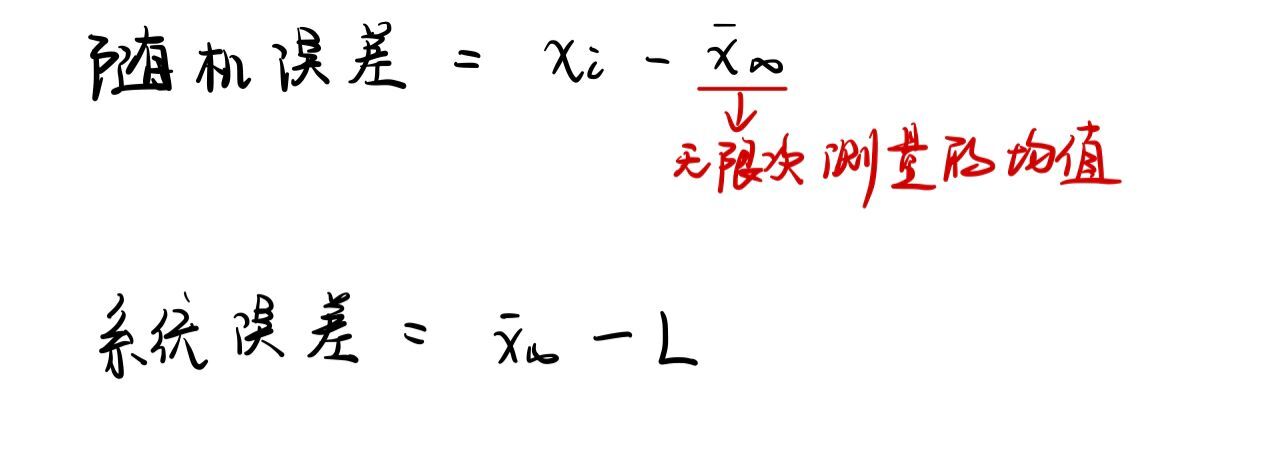 随机误差 = xᵢ - x̄∞
无限次测量的均值
系统误差 = x̄∞ - L